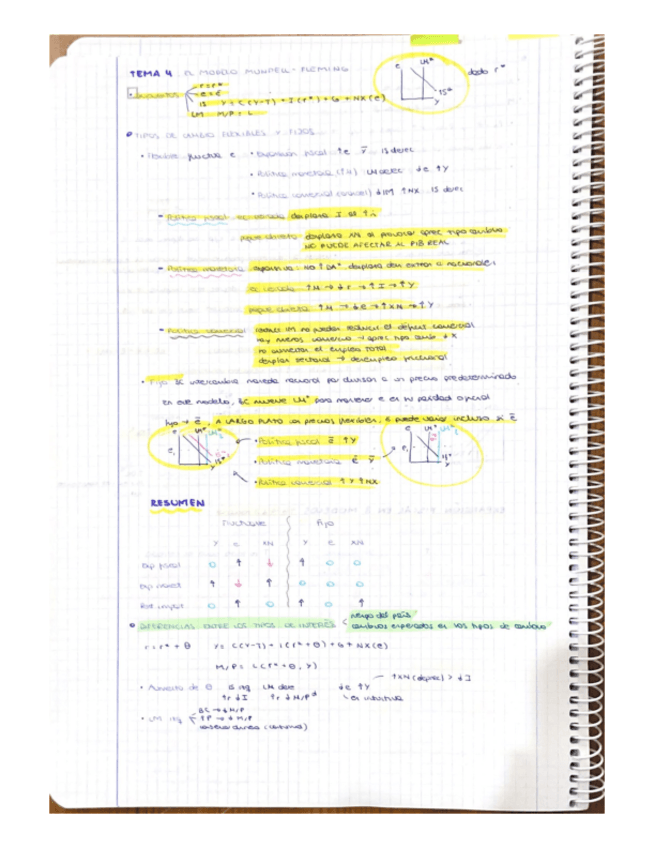 TEMA 4. EL MODELO MUNDELL-FLEMING
e LM* dado r*
IS*
Y
Supuestos r = r*
e = e
IS Y = C(Y-T) + I(r*) + G + NX(e)
LM M/P = L
TIPOS DE CAMBIO FLEXIBLES Y FIJOS
• Flexible fluctúa e • Expansión fiscal ↑e Ȳ IS derec
• Política monetaria (↑M) LM derec ↓e ↑Y
• Política comercial ↓IM ↑NX IS derec
- Política fiscal ec cerrada desplaza I si ↑r
peque abierta desplaza XN al provocar aprec tipo cambio
NO PUEDE AFECTAR AL PIB REAL
- Política monetaria expansiva: NO ↑DA*, desplaza dem extran a nacionales
ec cerrada ↑M → ↓r → ↑I → ↑Y
peque abierta ↑M → ↓e → ↑XN → ↑Y
- Política comercial reducir IM no pueden reducir el déficit comercial
hay menos comercio → aprec tipo camb ↓X
no aumentar el empleo TOTAL
desplaz sectorial → desempleo friccional
• Fijo BC intercambia moneda nacional por divisas a un precio predeterminado
en este modelo, BC mueve LM* para mantener e en su paridad oficial
fijo → ē. A LARGO PLAZO con precios flexibles, ε puede variar incluso si ē
• Política fiscal ē ↑Y
• Política monetaria ē Ȳ
• Política comercial ↑Y ↑NX
RESUMEN
Fluctuante Fijo
Y e XN Y e XN
Exp fiscal 0 ↑ ↓ ↑ 0 0
Exp monet ↑ ↓ ↑ 0 0 0
Rest import 0 ↑ 0 ↑ 0 ↑
DIFERENCIAS ENTRE LOS TIPOS DE INTERÉS riesgo del país
cambios esperados en los tipos de cambio
r = r* + θ Y = C(Y-T) + I(r* + θ) + G + NX(e)
M/P = L(r* + θ, Y)
• Aumento de θ IS izq LM dere ↓e ↑Y ↑XN (deprec) > ↓I
↑r ↓I ↑r ↓M/Pᵈ
• LM izq BC → ↓M/P
↑P → ↓M/P